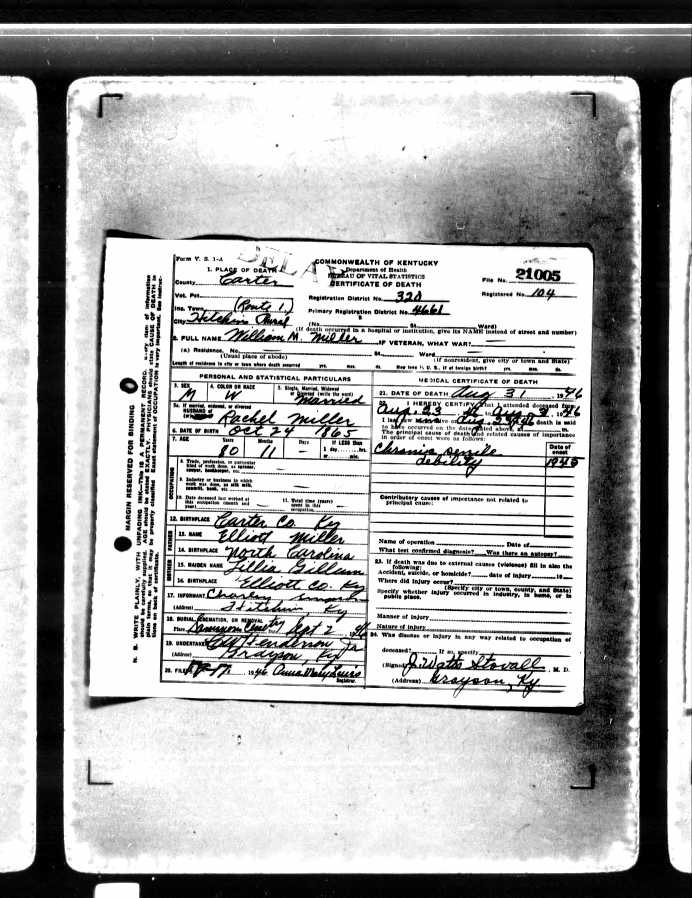 Form V. S. 1-A
COMMONWEALTH OF KENTUCKY
Department of Health
BUREAU OF VITAL STATISTICS
CERTIFICATE OF DEATH
File No. 21005
Registered No. 104
1. PLACE OF DEATH
County Carter
Vot. Pct.
Registration District No. 320
Inc. Town (Route 1.)
Primary Registration District No. 4661
City Hitchins Rural
(No. St., Ward)
(If death occurred in a hospital or institution, give its NAME instead of street and number)
2. FULL NAME William M. Miller IF VETERAN, WHAT WAR?
(a) Residence, No. St., Ward
(Usual place of abode) (If nonresident, give city or town and State)
Length of residence in city or town where death occurred yrs. mos. ds. How long in U. S., if of foreign birth? yrs. mos. ds.
PERSONAL AND STATISTICAL PARTICULARS
3. SEX M
4. COLOR OR RACE W
5. Single, Married, Widowed or Divorced (write the word) Married
5a. If married, widowed, or divorced
HUSBAND of
Rachel Miller
6. DATE OF BIRTH Oct 24 1865
7. AGE Years 80 Months 11 Days — If LESS than 1 day, hrs. or min.
OCCUPATION
8. Trade, profession, or particular kind of work done, as spinner, sawyer, bookkeeper, etc.
9. Industry or business in which work was done, as silk mill, sawmill, bank, etc.
10. Date deceased last worked at this occupation (month and year)
11. Total time (years) spent in this occupation
12. BIRTHPLACE Carter Co. Ky
FATHER
13. NAME Elliott Miller
14. BIRTHPLACE North Carolina
MOTHER
15. MAIDEN NAME Lillia Gillum
16. BIRTHPLACE Elliott Co. Ky
17. INFORMANT Charley
(Address) Hitchins Ky
18. BURIAL, CREMATION, OR REMOVAL
Place Cemetery Date Sept 2 46
19. UNDERTAKER Henderson Jr
(Address) Grayson, Ky
20. FILED 1946 Anna Registrar.
MEDICAL CERTIFICATE OF DEATH
21. DATE OF DEATH Aug 31, 1946
22. I HEREBY CERTIFY that I attended deceased from
Aug. 23 46 to Aug. 31 1946
I last saw alive on Aug. 23, 46 death is said
to have occurred on the date stated above, at m.
The principal cause of death and related causes of importance
in order of onset were as follows:
Date of onset
Chronic senile
debility 1945
Contributory causes of importance not related to
principal cause:
Name of operation Date of
What test confirmed diagnosis? Was there an autopsy?
23. If death was due to external causes (violence) fill in also the
following:
Accident, suicide, or homicide? date of injury 19
Where did injury occur?
(Specify city or town, county, and State)
Specify whether injury occurred in industry, in home, or in
public place.
Manner of injury
Nature of injury
24. Was disease or injury in any way related to occupation of
deceased? If so, specify
(Signed) J. Watts Stovall, M. D.
(Address) Grayson, Ky
MARGIN RESERVED FOR BINDING